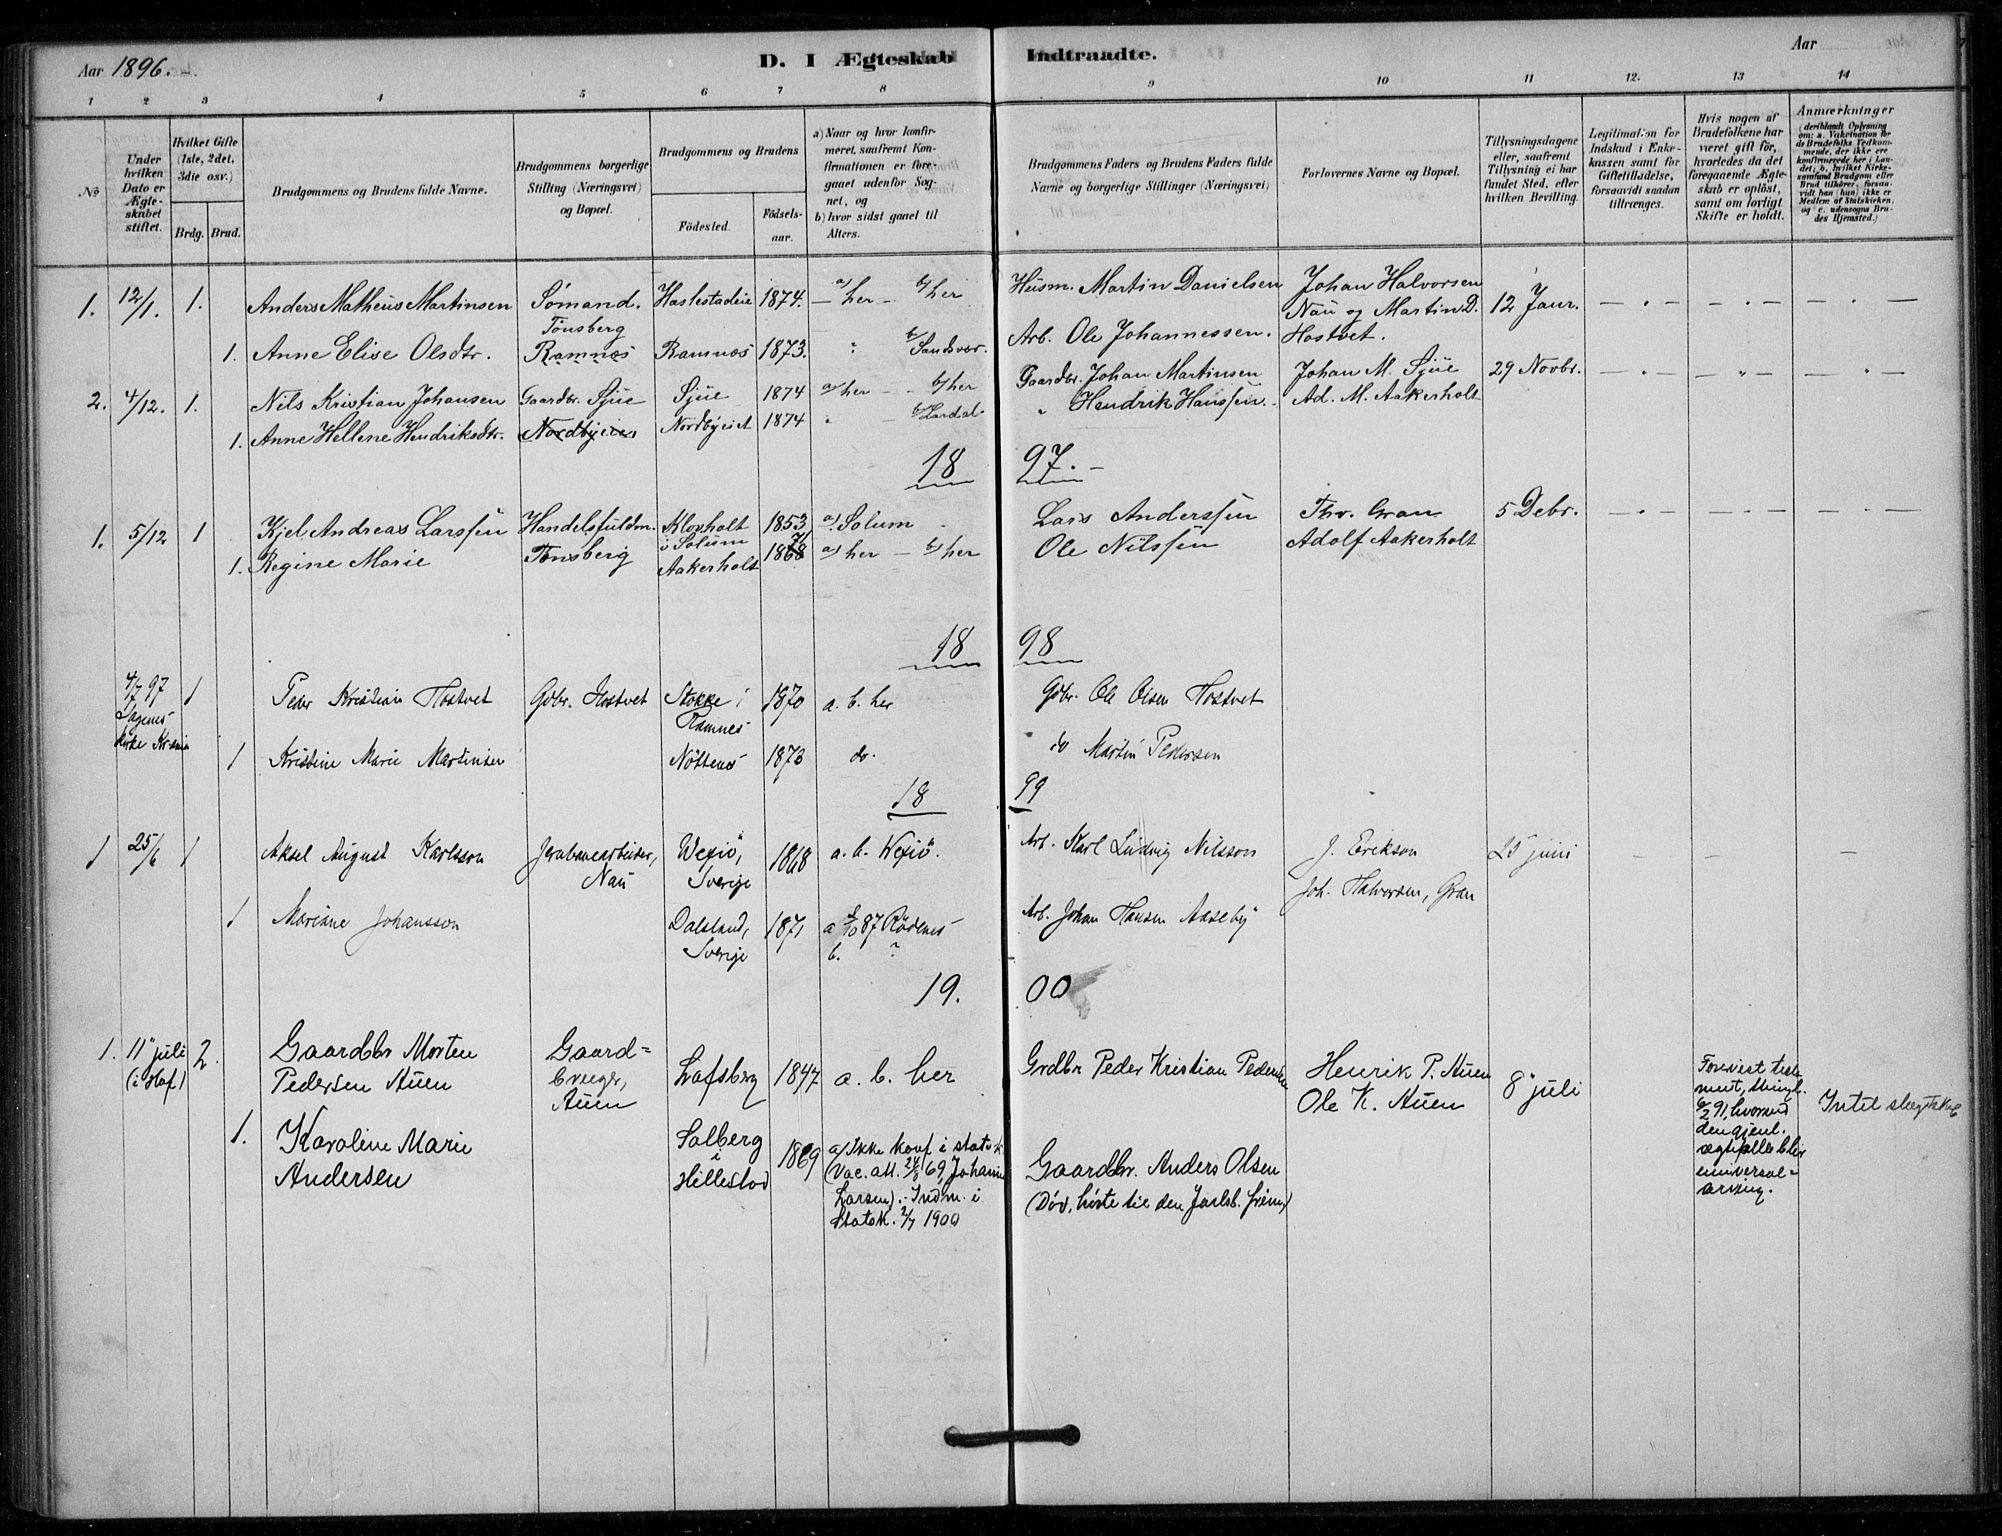 Aar 1896.
D. I Ægteskab Indtraadte.
Aar
1 2 3 4 5 6 7 8 9 10 11 12. 13 14
No
Under hvilken Dato er Ægteskabet stiftet.
Hvilket Gifte (1ste, 2det, 3die osv.)
Brdg. Brud.
Brudgommens og Brudens fulde Navne.
Brudgommens borgerlige Stilling (Næringsvei) og Bopæl.
Brudgommens og Brudens
Födested.
Födselsaar.
a) Naar og hvor konfirmeret, saafremt Konfirmationen er foregaaet udenfor Sognet, og
b) hvor sidst gaaet til Alters.
Brudgommens Faders og Brudens Faders fulde Navne og borgerlige Stillinger (Næringsvei)
Forlovernes Navne og Bopæl.
Tillysningsdagene eller, saafremt Tillysning ei har fundet Sted, efter hvilken Bevilling.
Legitimation for Indskud i Enkekassen samt for Giftetilladelse, forsaavidt saadan tiltrænges.
Hvis nogen af Brudefolkene har været gift för, hvorledes da det foregaaende Ægteskab er oplöst, samt om lovligt Skifte er holdt.
Anmærkninger
(deriblandt Oplysning om: a. Vakcination for de Brudefolks Vedkommende, der ikke ere konfirmerede her i Landet; b. hvilket Kirkesamfund Brudgom eller Brud tilhörer, forsaavidt han (hun) ikke er Medlem af Statskirken, og c. udensogns Brudes Hjemsted.)
1. 12/1. 1. Anders Matheus Martinsen Sømand. Tønsberg Haslestadeie 1874. a) her - b) her Husm. Martin Danielsen Johan Halvorsen Nau og Martin D. Hostvet. 12 Janr.
1. Anne Elise Olsdtr. Ramnes Ramnes 1873. " b) Sandsvær. Arb. Ole Johannessen.
2. 4/12. 1. Nils Kristian Johansen Gaardbr. Sjue Sjue 1874 a) her - b) her Gaardbr. Johan Martinsen Johan M. Sjue 29 Novbr.
1. Anne Hellene Hendriksdtr. Nordbyeie Nordbyeiet 1874 " b) Lardal. " Hendrik Hanssen. Ad. M. Aakerholt
18 97.
1. 5/12 1 Kjel Andreas Larssen Handelsfuldm. Klovholt i Solum 1853 a) Solum Lars Anderssen Thv. Gran 5 Debr.
1. Regine Marie Tønsberg Aakerholt 1868 a) her - b) her Ole Nilssen Adolf Aakerholt
18 98
4/7 97 kirke 1 Peder Kristian Hostvet Gdbr. Hostvet Stokke i Ramnes 1870 a. b. her Gdbr. Ole Olsen Hostvet
1 Kristine Marie Martinsen Nöttenes 1873 do. do Martin Pedersen
18 99
1 25/6 1 Aksel August Karlsson Jernbanearbeider, Nau Wexiö, Sverige 1868 a. b. Wexiö. Arb. Karl Ludvig Nilsson J. Erikson Joh. Halvorsen, Gran 25 juni
1 Mariane Johansson Dalsland, Sverige 1871 a 2/10 87 Rödenes b. ? Arb. Johan Hansen Aaseby
19. 00
1. 11" juli (i Hof) 2. Gaardbr Morten Pedersen Auen Gaardbruger, Auen Lofsberg 1847 a. b. her Grdbr Peder Kristian Pedersen Henrik P. Auen Ole K. Auen 8" juli
Forevist testament, thingl. 6/2 91, hvorved den gjenl. ægtefælle blir universalarving.
Intet slægtskab
1. Karoline Marie Andersen Solberg i Hillestad 1869 a) Ikke konf i statsk. (Vac. att. 24/8 69, Johannes Larsen). Indm. i Statsk. 2/7 1900 Gaardbr. Anders Olsen (Död, hörte til den Jarlsb. frim.)